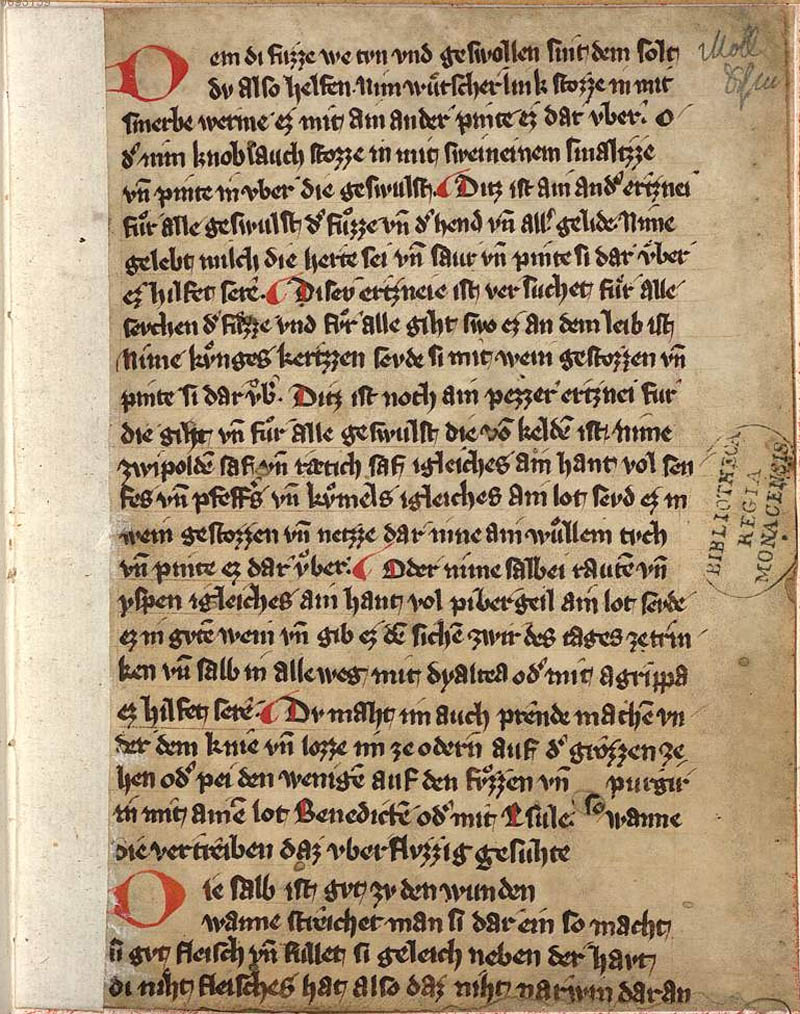 Dem di fuͤzze we tvn vnd geswollen sint dem solt
dv also helfen. Nim wuͦtscherlink stozze in mit
smerbe werme ez mit ain ander pinte ez dar vber. O
dˀ nim knoblauch stozze in mit sweineinem smaltzze
vn̄ pinte in vber die geswulst. Ditz ist ain andˀ ertznei
fuͤr alle geswulst dˀ fuͤzze vn̄ dˀ hend vn̄ allˀ gelide. Nime
gelebt milch die herte sei vn̄ saur vn̄ pinte si dar vͤber
ez hilfet sere. Disev ertzneie ist versuchet fuͤr alle
sevchen dˀ fuͤzze vnd fuͤr alle giht swo ez an dem leib ist
Nime kuͤnges kertzzen sevde si mit wein gestozzen vn̄
pinte si dar vͤbˀ. Ditz ist noch ain pezzer ertznei fur
die giht vn̄ fuͤr alle geswulst die vō keldē ist. nime
zwipoldē saf vn̄ rætich saf igleiches ain hant vol sen
fes vn̄ pfeffˀs vn̄ kuͤmels igleiches ain lot sevd ez in
wein gestozzen vn̄ netzze dar inne ain wuͤllein tvch
vn̄ pinte ez dar vͤber. Oder nime salbei rautē vn̄
yspen igleiches ain hant vol pibergeil ain lot sevde
ez in gvtē wein vn̄ gib ez dē sichē zwir des tages ze trin
ken vn̄ salb in alleweg mit dyaltea odˀ mit agrippa
ez hilfet sere. Dv maht im auch prende machē vn
der dem knie vn̄ lozze im ze odern auf dˀ grozzen ze
hen odˀ pei den wenigē auf den fuͤzzen vn̄ purgir
in mit amē lot Benedictē odˀ mit Esule. so wanne
die vertreiben daz vberflvzzig gesuhte
Die salb ist gvt zv den wunden
wanne streichet man si dar ein so macht
si gvt fleisch vn̄ fullet si geleich neben der havt
di niht fleisches hat also daz niht narwin daran
BIBLIOTHECA
REGIA
MONACENSIS